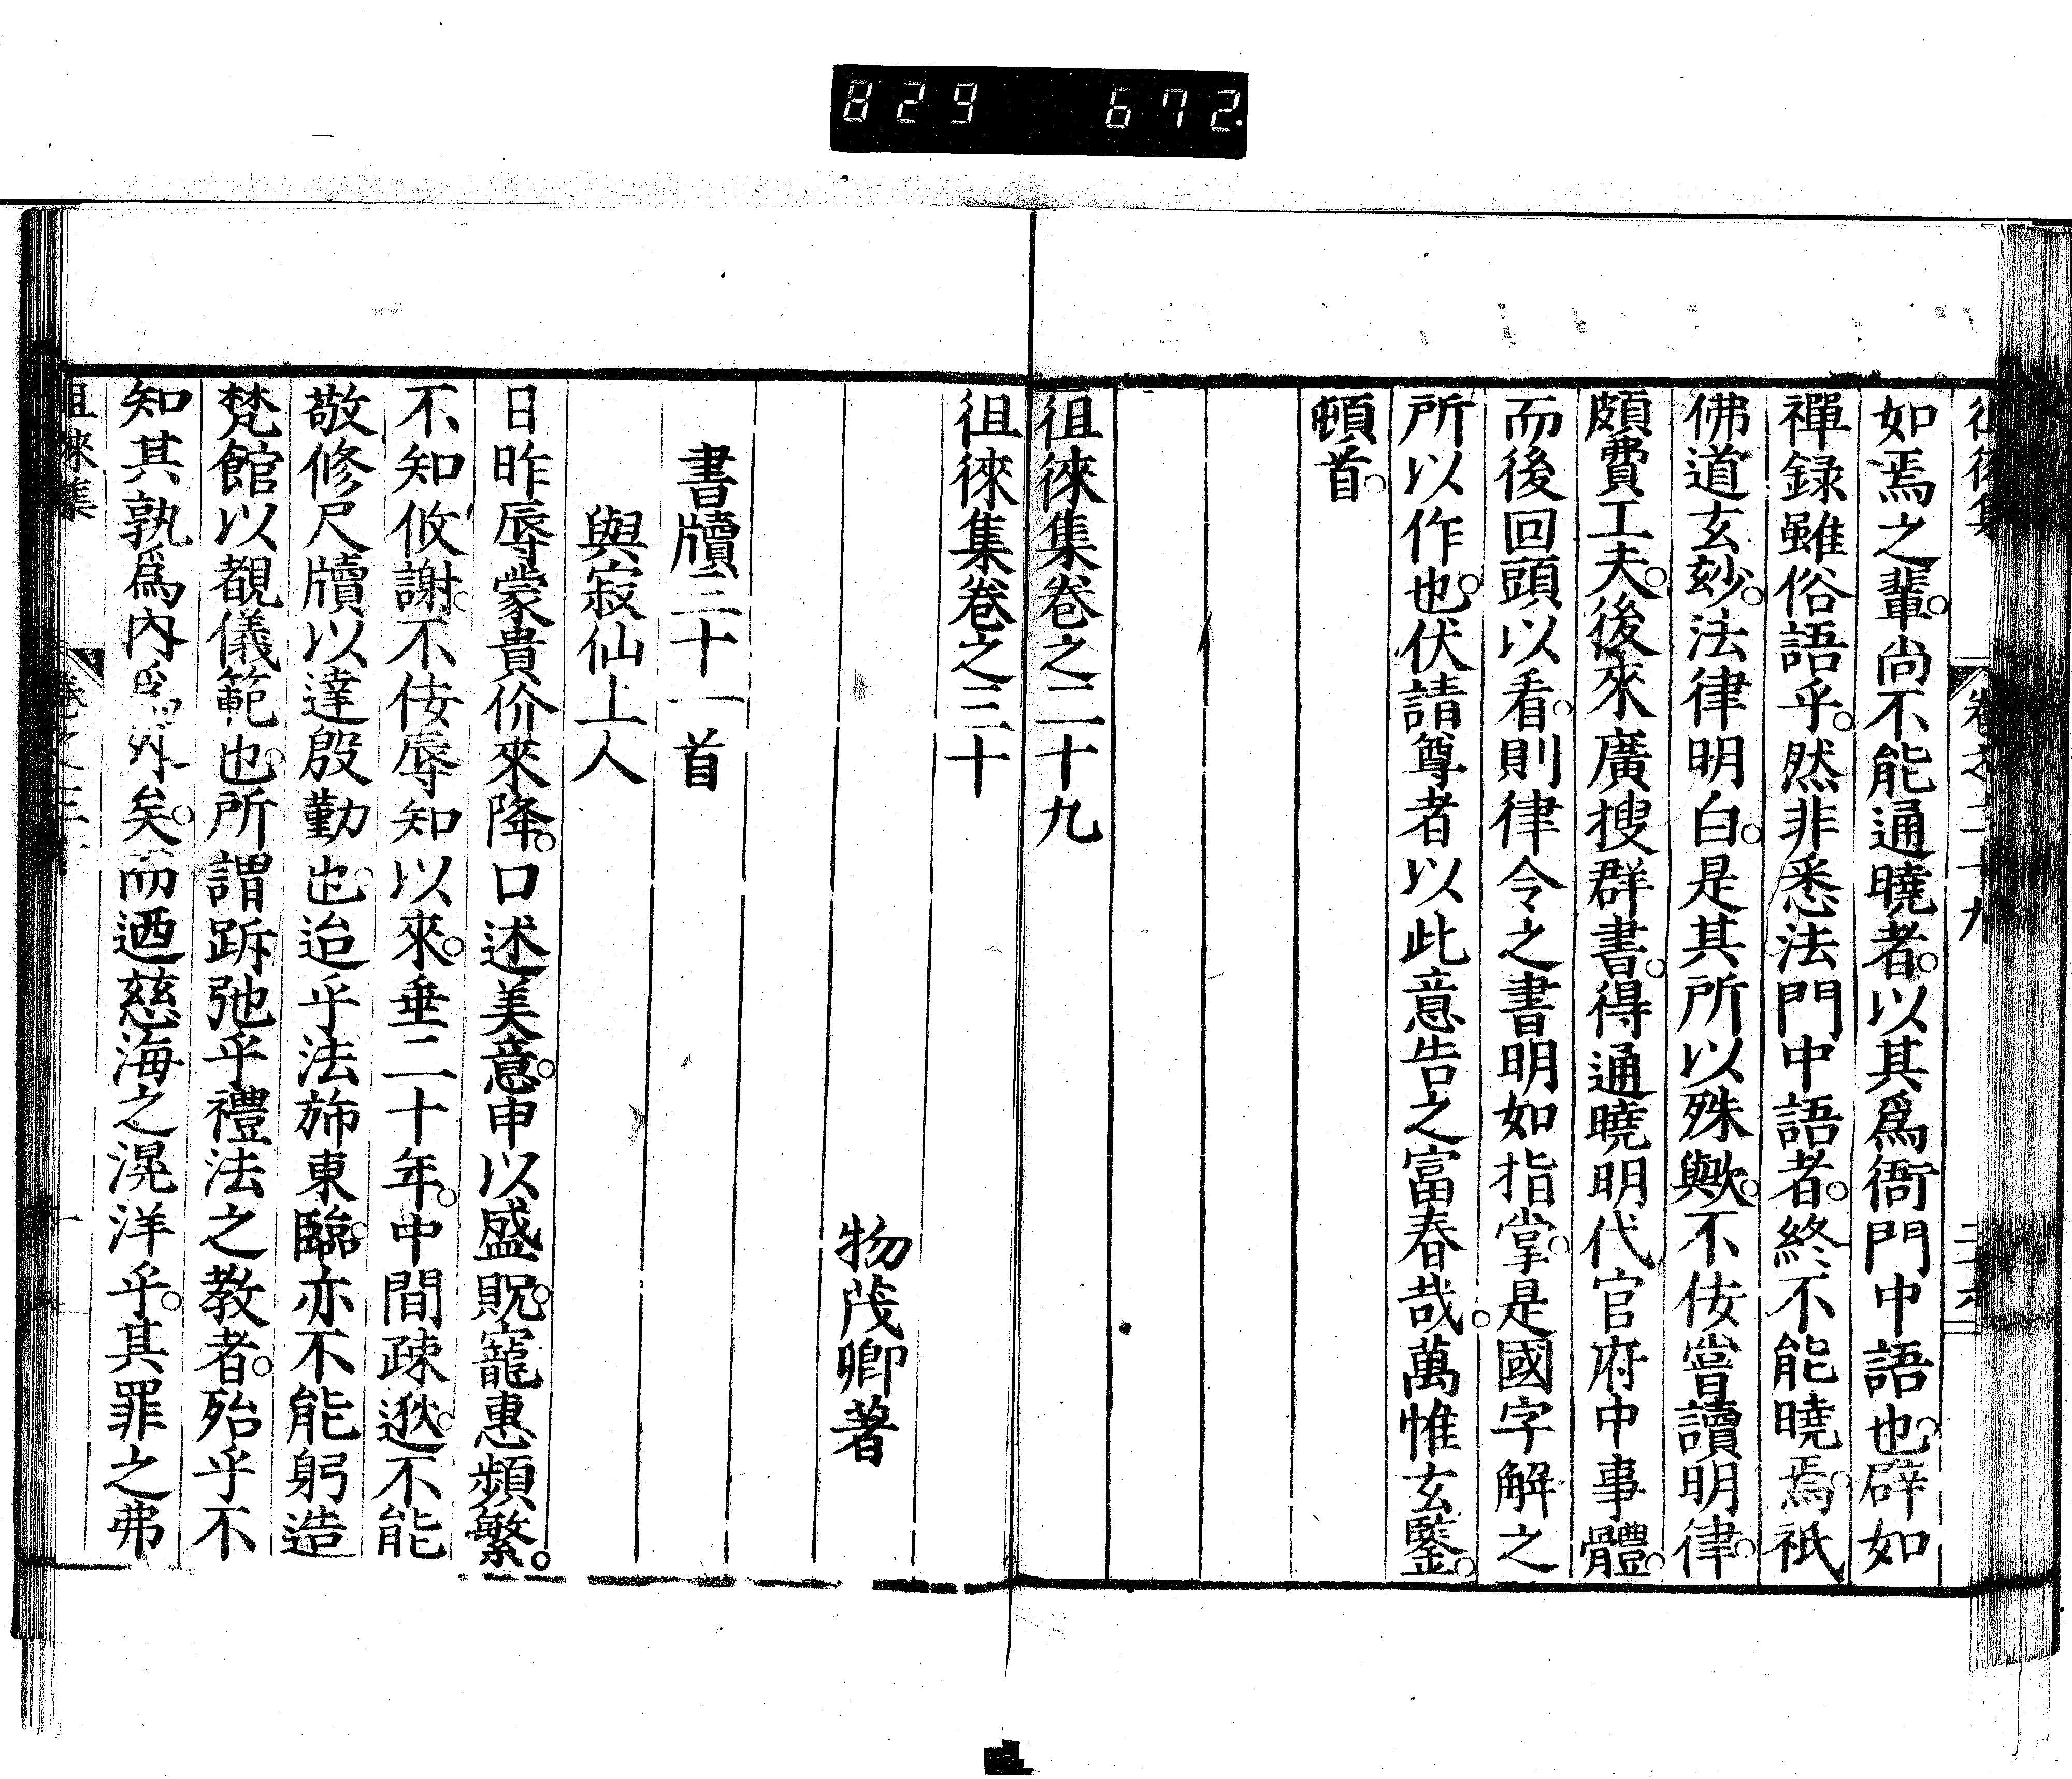 829 672
如焉之輩。尚不能通曉者。以其爲衙門中語也。辟如
禪録雖俗語乎。然非悉法門中語者。終不能曉焉。祇
佛道玄玅。法律明白。是其所以殊歟。不佞嘗讀明律。
頗費工夫。後來廣搜群書。得通曉明代官府中事體。
而後回頭以看。則律令之書明如指掌。是國字解之
所以作也。伏請尊者以此意告之富春哉。萬惟玄鑒。
頓首。
徂徠集卷之二十九
徂徠集卷之三十
物茂卿著
書牘三十一首
與寂仙上人
日昨辱蒙貴价來降。口述美意。申以盛貺。寵惠頻繁。
不知攸謝。不佞辱知以來。垂二十年。中間疎逖。不能
敬修尺牘以達殷勤也。迨乎法斾東臨。亦不能躬造
梵館以覩儀範也。所謂跅弛乎禮法之教者。殆乎不
知其孰爲内爲外矣。而迺慈海之滉洋乎。其罪之弗
徠集 卷之三十 一